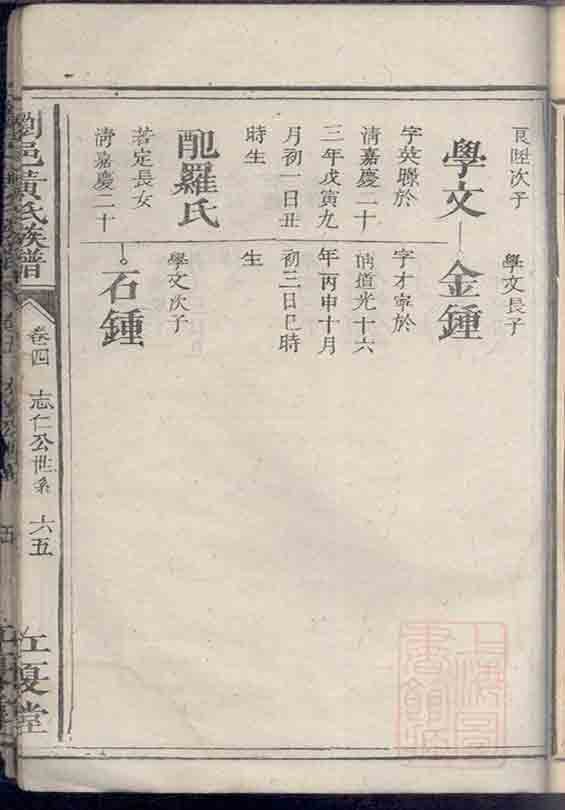 良陞次子
學文
字英聯於
清嘉慶二十
三年戊寅九
月初一日丑
時生
配羅氏
若定長女
清嘉慶二十
學文長子
金鍾
字才寧於
清道光十六
年丙申十月
初三日巳時
生
學文次子
石鍾
瀏邑黃氏族譜
卷四
志仁公世系
六五
江夏堂
上海圖
書館藏